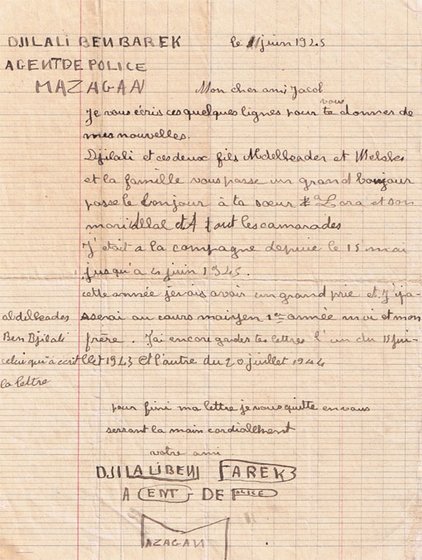 DJILALI BEN BAREK
AGENT DE POLICE
MAZAGAN
le 11 juin 1945
Mon cher ami Jacob
Je vous écris ces quelques lignes pour te vous donner de
mes nouvelles.
Djilali et ces deux fils Abdelkader et
et la famille vous passe un grand bonjour
passe le bonjour à ta sœur Lora et son
mari Allal et A tout les camarades
J'était a la compagne depuie le 15 mai
jusqu'à 4 juin 1945.
cette année je vais avoir un grand prie et
au cours moiyen 1ere année moi et mon
frère. J'ai encore garder tes lettres l'un du 11 jui-
llet 1943 et l'autre du 20 juillet 1944
abdelkader
Ben Djilali
celui qui a écrit
la lettre
pour fini ma lettre je vous quitte en vous
serrant la main cordiallment
votre ami
DJILALI BEN BAREK
AGENT DE POLICE
MAZAGAN